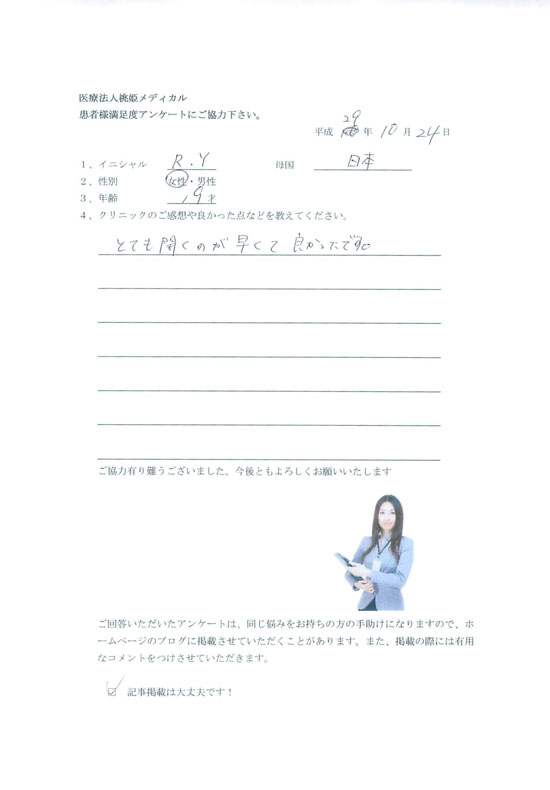 医療法人桃姫メディカル
患者様満足度アンケートにご協力下さい。
平成 29 年 10 月 24 日
1、イニシャル R.Y 母国 日本
2、性別 女性・男性
3、年齢 19 才
4、クリニックのご感想や良かった点などを教えてください。
とても開くのが早くて良かったです。
ご協力有り難うございました。今後ともよろしくお願いいたします
ご回答いただいたアンケートは、同じ悩みをお持ちの方の手助けになりますので、ホ
ームページのブログに掲載させていただくことがあります。また、掲載の際には有用
なコメントをつけさせていただきます。
☑ 記事掲載は大丈夫です！